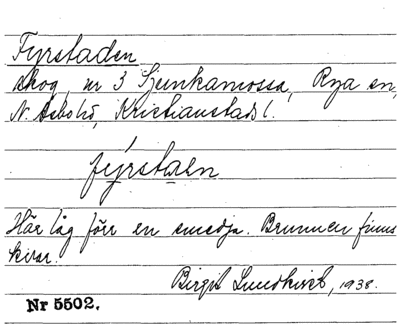 Fyrstaden
skog, nr 3 Sjunkamossa, Rya sn,
N. Åsbohd, Kristianstads l.
fýrstaen
Här låg förr en smedja. Brunnen finns
kvar.
Birgit Lundkvist, 1938.
Nr 5502.